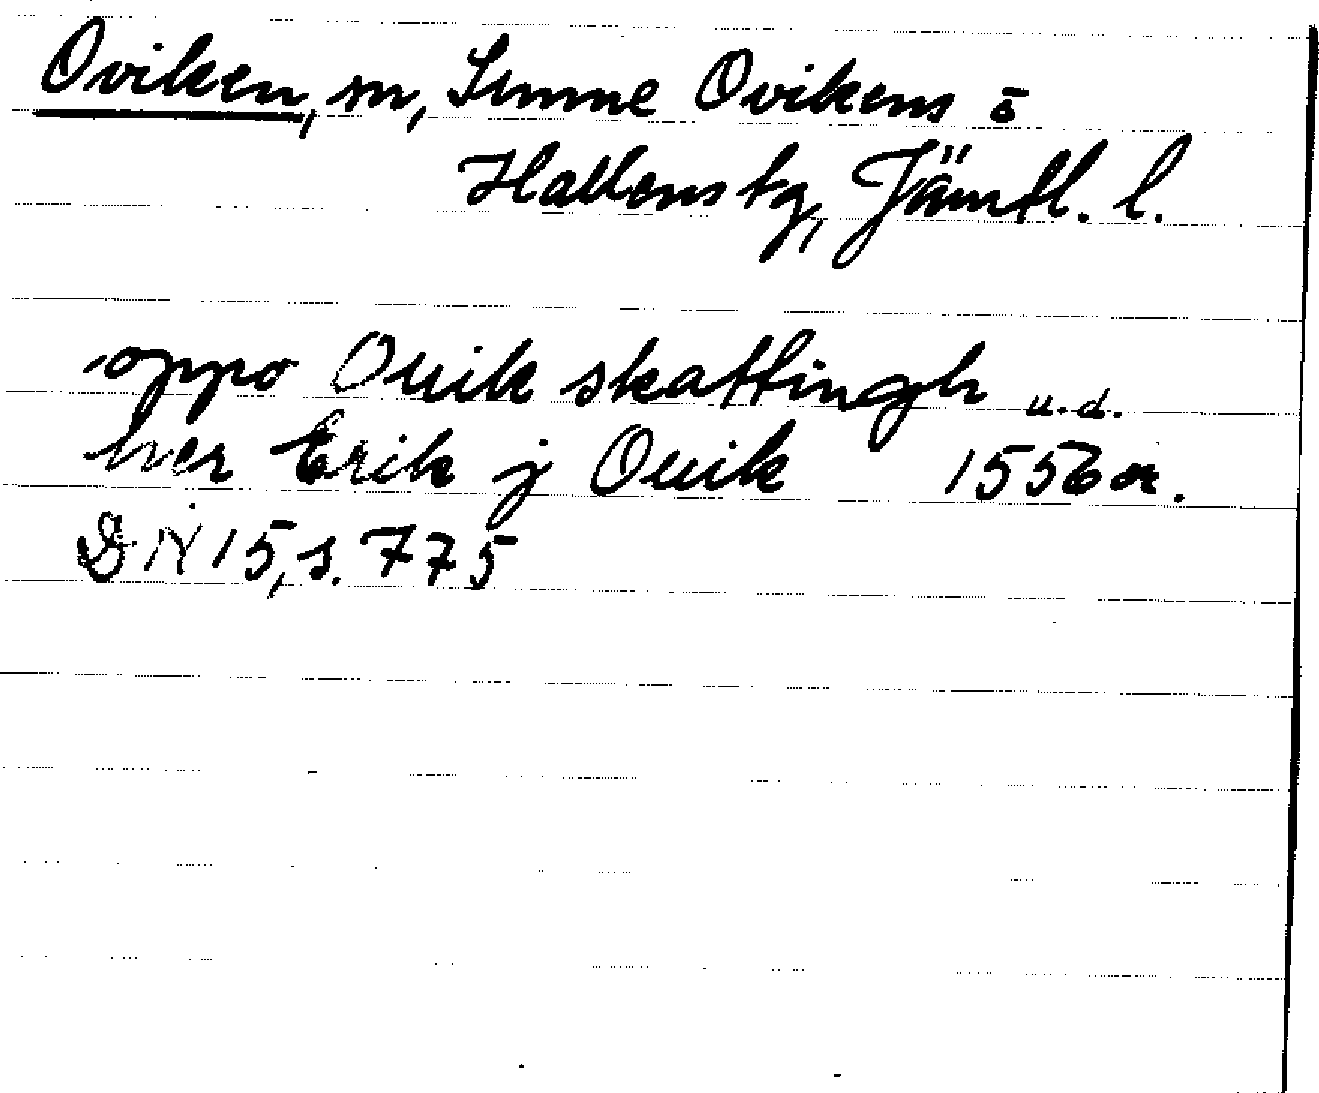 Oviken, sn, Sunne Ovikens o
Hallens tg, Jämtl. l.
oppo Ouik skattingh u.d.
her Erik j Ouik 1556 or.
DN 15, s. 775